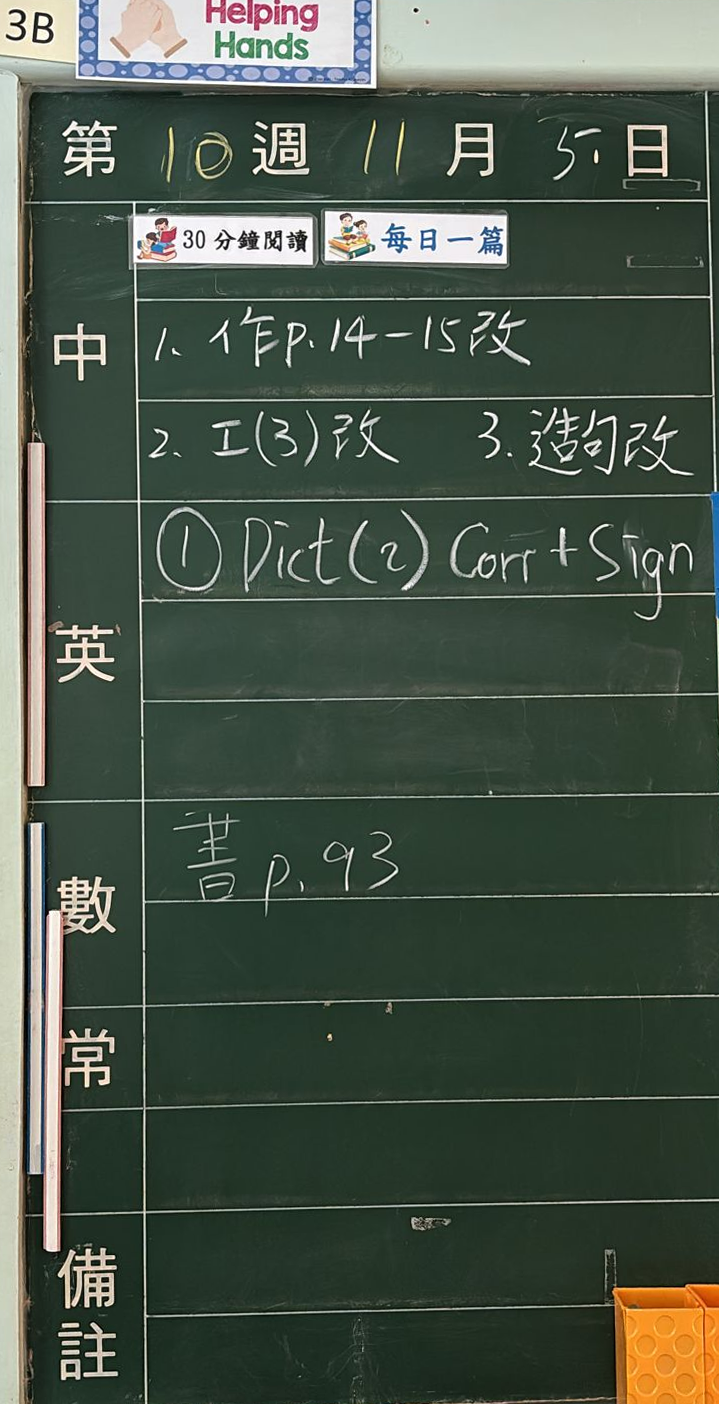 3B
Helping
Hands
第 10 週 11 月 5 日
30 分鐘閱讀 每日一篇
中
1. 作p.14-15改
2. 工(3)改 3. 造句改
英
① Dict(2) Corr + Sign
數
書 p.93
常
備註